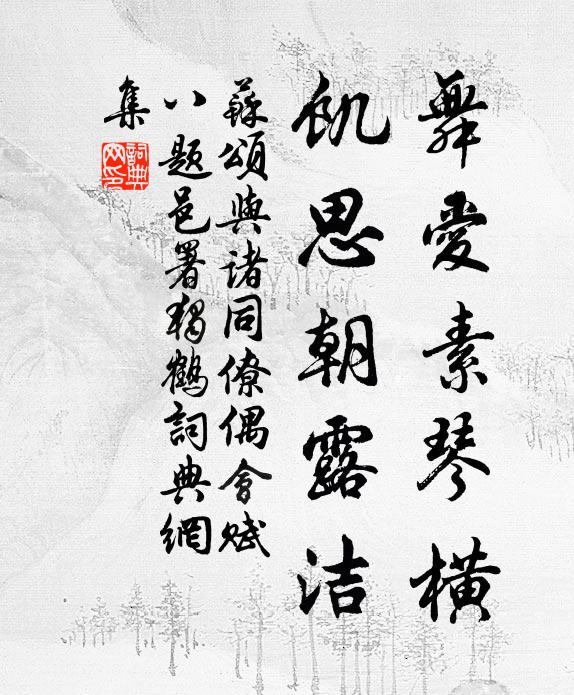 舞愛素琴橫
飢思朝露洁
蘇頌與诸同僚偶會賦
八題邑署獨鶴詞典網
集
詞典网印